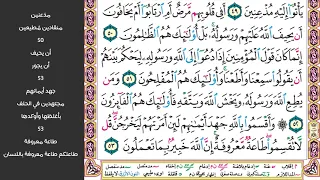 يَأْتُوٓا۟ إِلَيْهِ مُذْعِنِينَ ٤٩ أَفِى قُلُوبِهِم مَّرَضٌ أَمِ ٱرْتَابُوٓا۟ أَمْ يَخَافُونَ
أَن يَحِيفَ ٱللَّهُ عَلَيْهِمْ وَرَسُولُهُۥ بَلْ أُو۟لَٰٓئِكَ هُمُ ٱلظَّٰلِمُونَ ٥٠
إِنَّمَا كَانَ قَوْلَ ٱلْمُؤْمِنِينَ إِذَا دُعُوٓا۟ إِلَى ٱللَّهِ وَرَسُولِهِۦ لِيَحْكُمَ بَيْنَهُمْ
أَن يَقُولُوا۟ سَمِعْنَا وَأَطَعْنَا وَأُو۟لَٰٓئِكَ هُمُ ٱلْمُفْلِحُونَ ٥١ وَمَن
يُطِعِ ٱللَّهَ وَرَسُولَهُۥ وَيَخْشَ ٱللَّهَ وَيَتَّقْهِ فَأُو۟لَٰٓئِكَ هُمُ ٱلْفَآئِزُونَ
٥٢ وَأَقْسَمُوا۟ بِٱللَّهِ جَهْدَ أَيْمَٰنِهِمْ لَئِنْ أَمَرْتَهُمْ لَيَخْرُجُنَّ قُل
لَّا تُقْسِمُوا۟ طَاعَةٌ مَّعْرُوفَةٌ إِنَّ ٱللَّهَ خَبِيرٌۢ بِمَا تَعْمَلُونَ ٥٣
مذعنين
منقادين مُطيعين
50
أن يحيف
أن يجور
53
جهد أيمانهم
مجتهدين في الحلف
بأغلظها وأوكدها
53
طاعة معروفة
طاعتكم طاعة معروفة باللسان